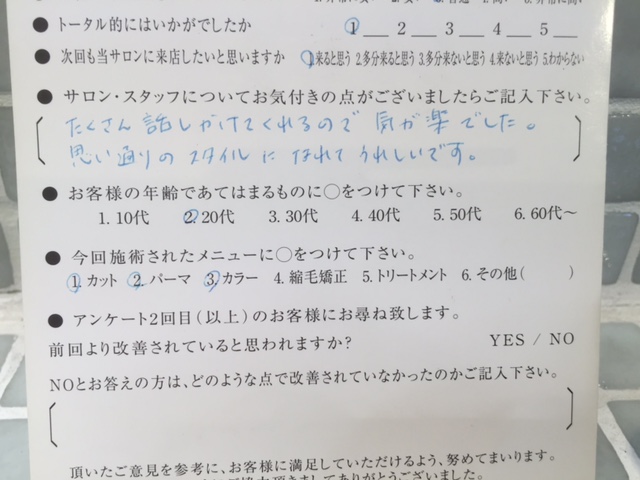 ● トータル的にはいかがでしたか 1 2 3 4 5
● 次回も当サロンに来店したいと思いますか 1.来ると思う 2.多分来ると思う 3.多分来ないと思う 4.来ないと思う 5.わからない
● サロン・スタッフについてお気付きの点がございましたらご記入下さい。
たくさん話しかけてくれるので気が楽でした。
思い通りのスタイルになれてうれしいです。
● お客様の年齢であてはまるものに○をつけて下さい。
1.10代 2.20代 3.30代 4.40代 5.50代 6.60代～
● 今回施術されたメニューに○をつけて下さい。
1.カット 2.パーマ 3.カラー 4.縮毛矯正 5.トリートメント 6.その他( )
● アンケート2回目(以上)のお客様にお尋ね致します。
前回より改善されていると思われますか? YES / NO
NOとお答えの方は、どのような点で改善されていなかったのかご記入下さい。
頂いたご意見を参考に、お客様に満足していただけるよう、努めてまいります。
頂きましてありがとうございました。